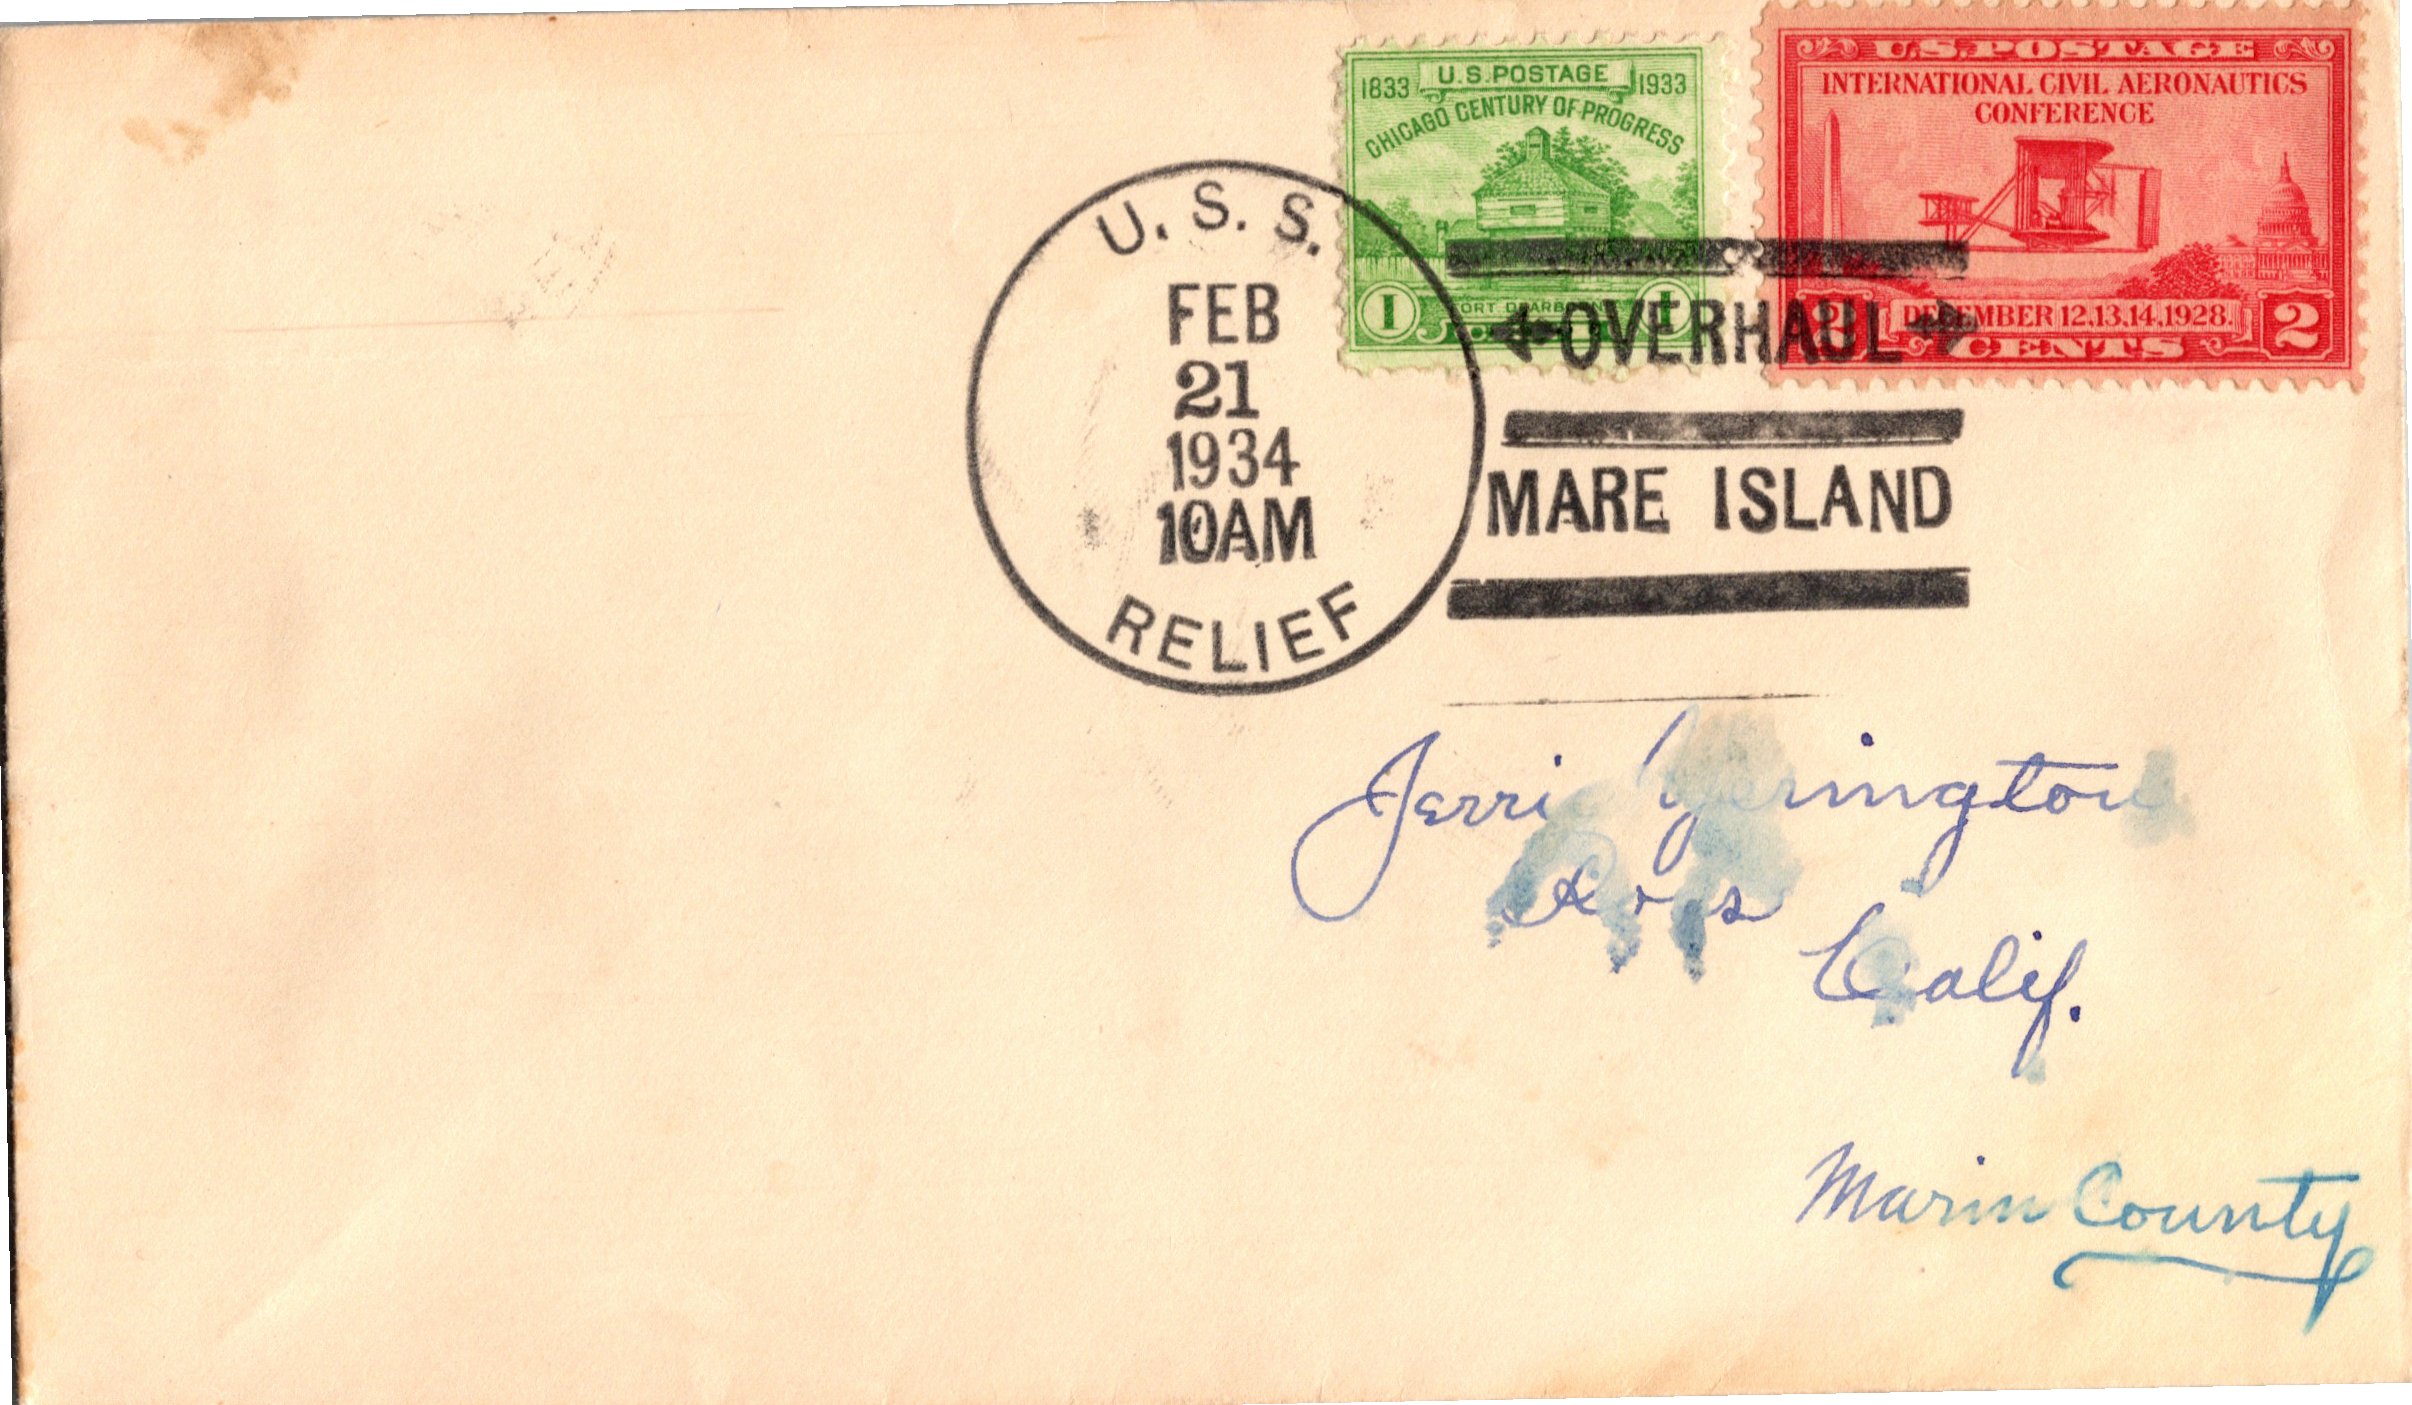 U.S. POSTAGE
1833 1933
CHICAGO CENTURY OF PROGRESS
FORT DEARBORN
1 1
U.S. POSTAGE
INTERNATIONAL CIVIL AERONAUTICS
CONFERENCE
2 DECEMBER 12,13,14,1928. 2
CENTS
U.S.S.
FEB
21
1934
10AM
RELIEF
OVERHAUL
MARE ISLAND
Jerri Yerington
Calif.
Marin County